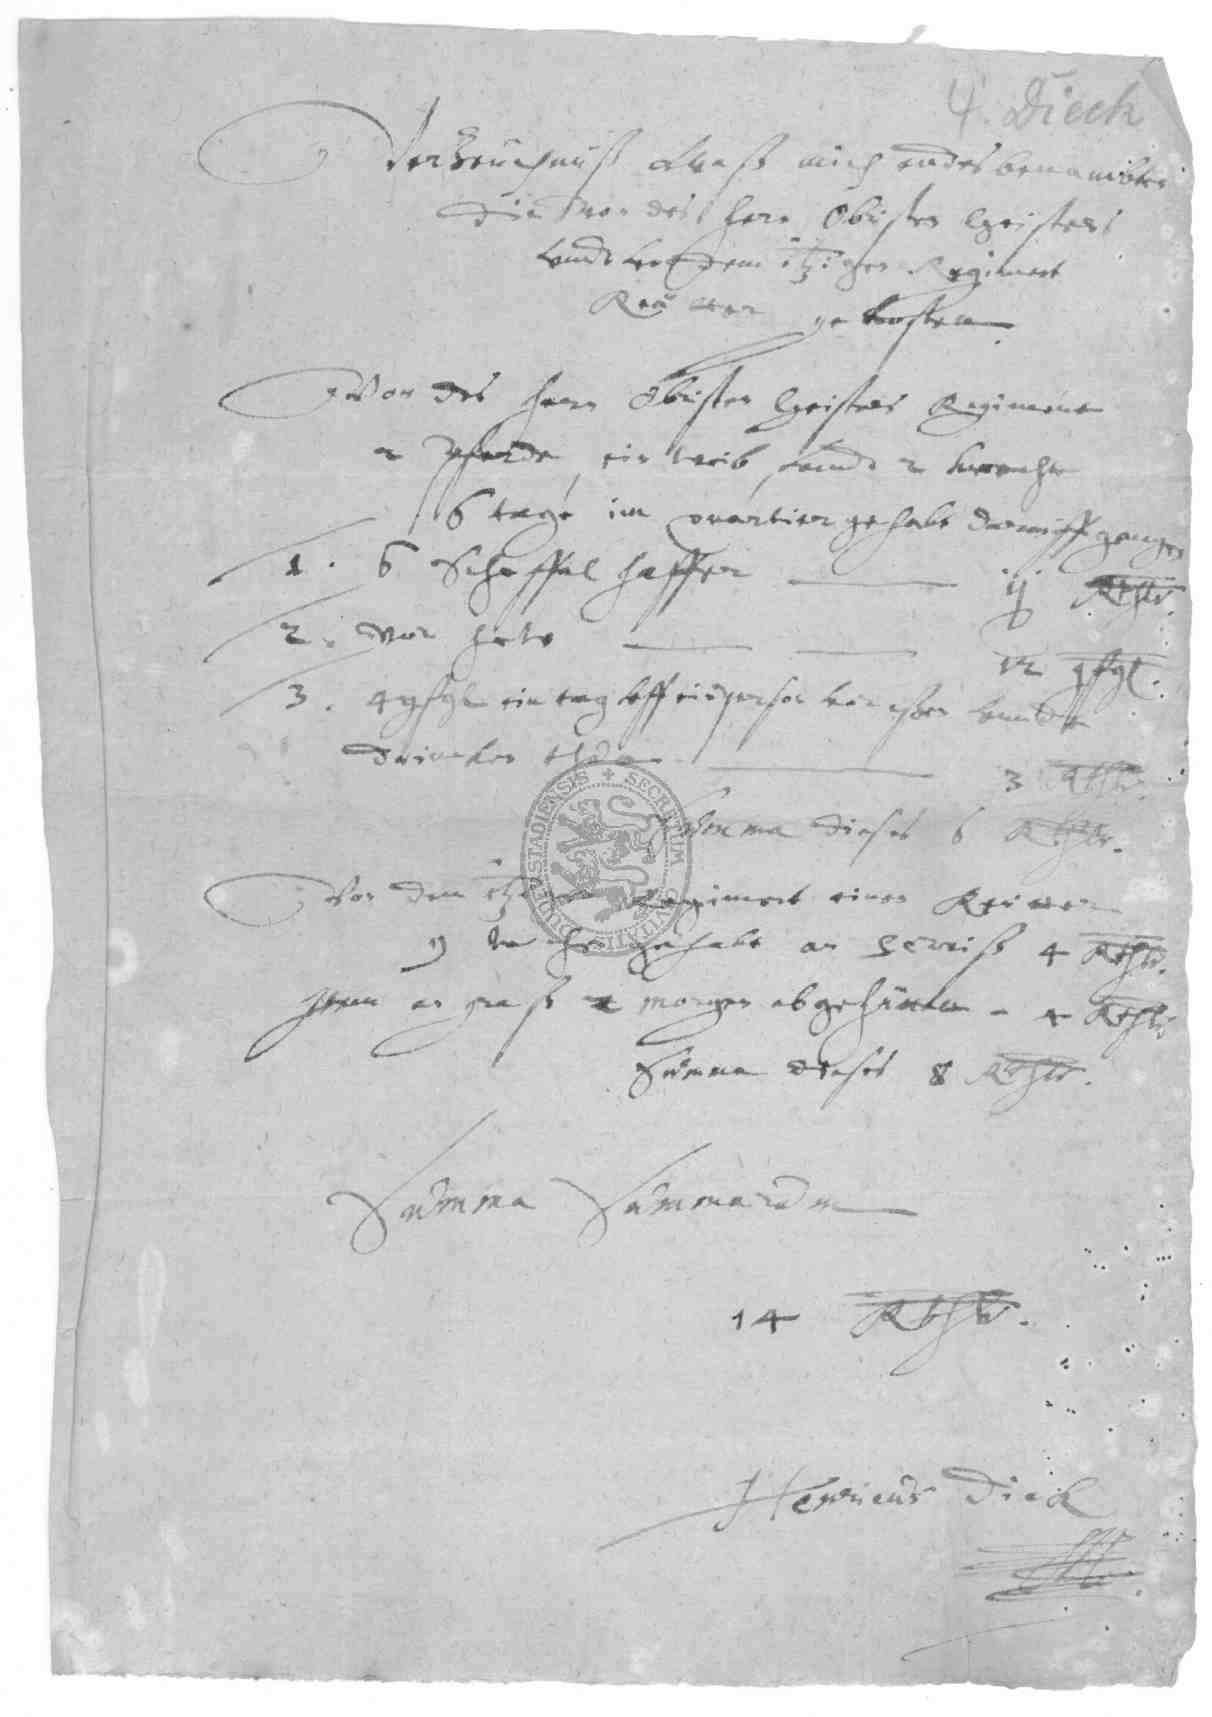 4. Dieck
Verzeuchnuß Waß mich endesbenandten
die von des herr Obristen Geisters
unndt von dem itzigen Regiment
Reuter gekosten
Von des herr Obristen Geisters Regiment
2 Pferde, ein weib, unndt 2 knechte
6 tage im quartier gehabt darauff gangen
1. 6 Scheffel haffer — ij Rthlr.
2. vor hew — 12 gßgl.
3. 4 gßgl ein tag uff ein person vor eßen unndt
drincken thut — 3 Rthlr.
Summa dieses 6 Rthlr.
Von dem itzigen Regiment einen Reuter
ij gehabt an Serviß 4 Rthlr.
Item an graß 2 morgen abgehüttet - 4 Rthlr
Summa dieses 8 Rthlr.
Summa Summarum
14 Rthlr.
Henricus Dieck
SECRETUM CIVITATIS DUDERSTADIENSIS